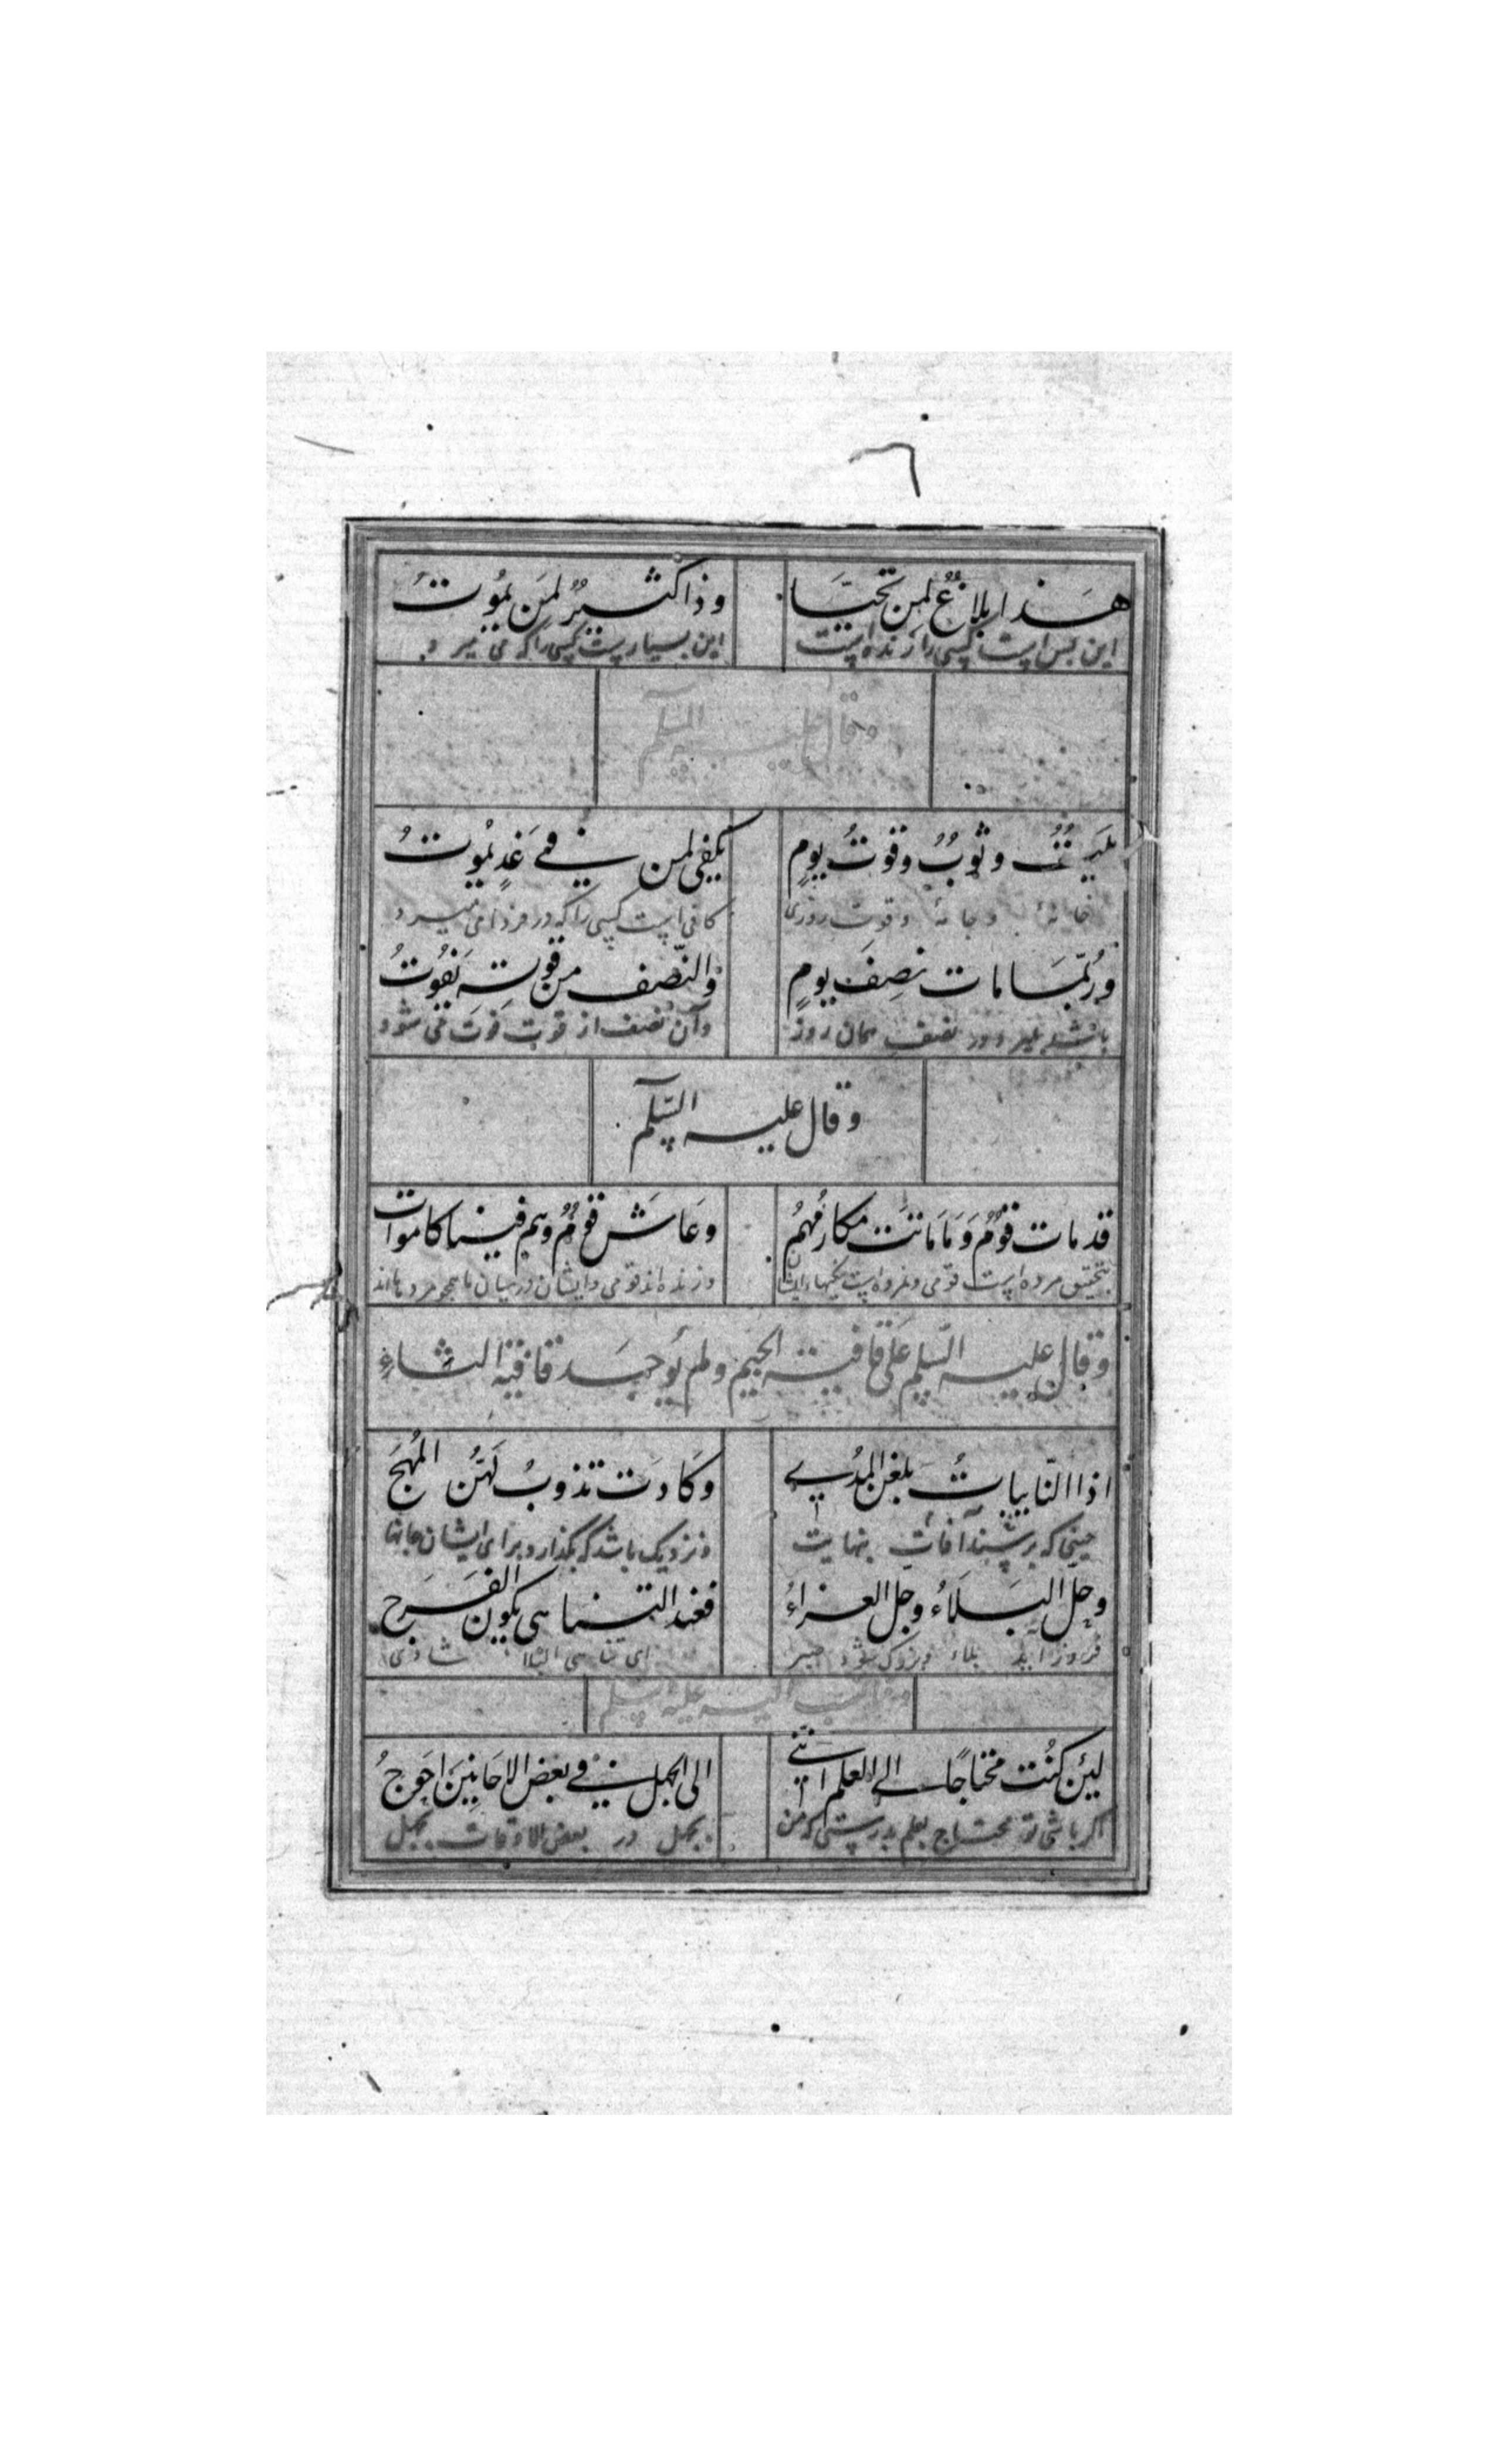 هَذا بلاغٌ لمن تحيّا وذا كثيرٌ لمَن يمُوتُ
این بس است کسی را زنده است این بسیارست کسی را که می میرد
وقال علیه السلم
بَيتٌ وثوبٌ وقوتُ يومٍ يكفي لمن في غَدٍ يمُوتُ
خانهٔ وجامهٔ وقوت روزی کافی است کسی را که در فردا می میرد
ورُبّمَا مات نصِفَ يومٍ والنّصف من قوتِهِ يَفُوتُ
باشد بمیرد در نصف همان روز وآن نصف از قوت فوت می شود
وقال عليه السّلم
قدمات قومٌ وَمَا مَاتَت مكارُمهُم وعَاشَ قومٌ وهم فينا كاموات
بتحقیق مرده است قومی ونمرده است نیکیهاء ایشان وزنده اند قومی وایشان در میان ما همچو مرده ها اند
وقال عليه السّلم عَلى قافية الجيم ولم يُوجَد قافية الثاءِ
اذا النّايباتُ بلغن المدُى وكَادَت تذوبُ لهنّ المُهجَ
حینی که برسند آفات بنهایت ونزدیک باشد که بگذارد برای ایشان جانها
وحلّ البَلَاءُ وجل العزاءُ فعند التناهى يكون الفَرَج
فروز آید بلاء وبزرک شود صبر ای تناهی البلا شادی
علیه السلم
لئِن كُنت محتاجًا الى العلم انّني الى الجهل في بعض الاحَايِنَ احَوجُ
اکر باشی تو محتاج بعلم بدرستی که من بجهل در بعض الاوقات بجهل